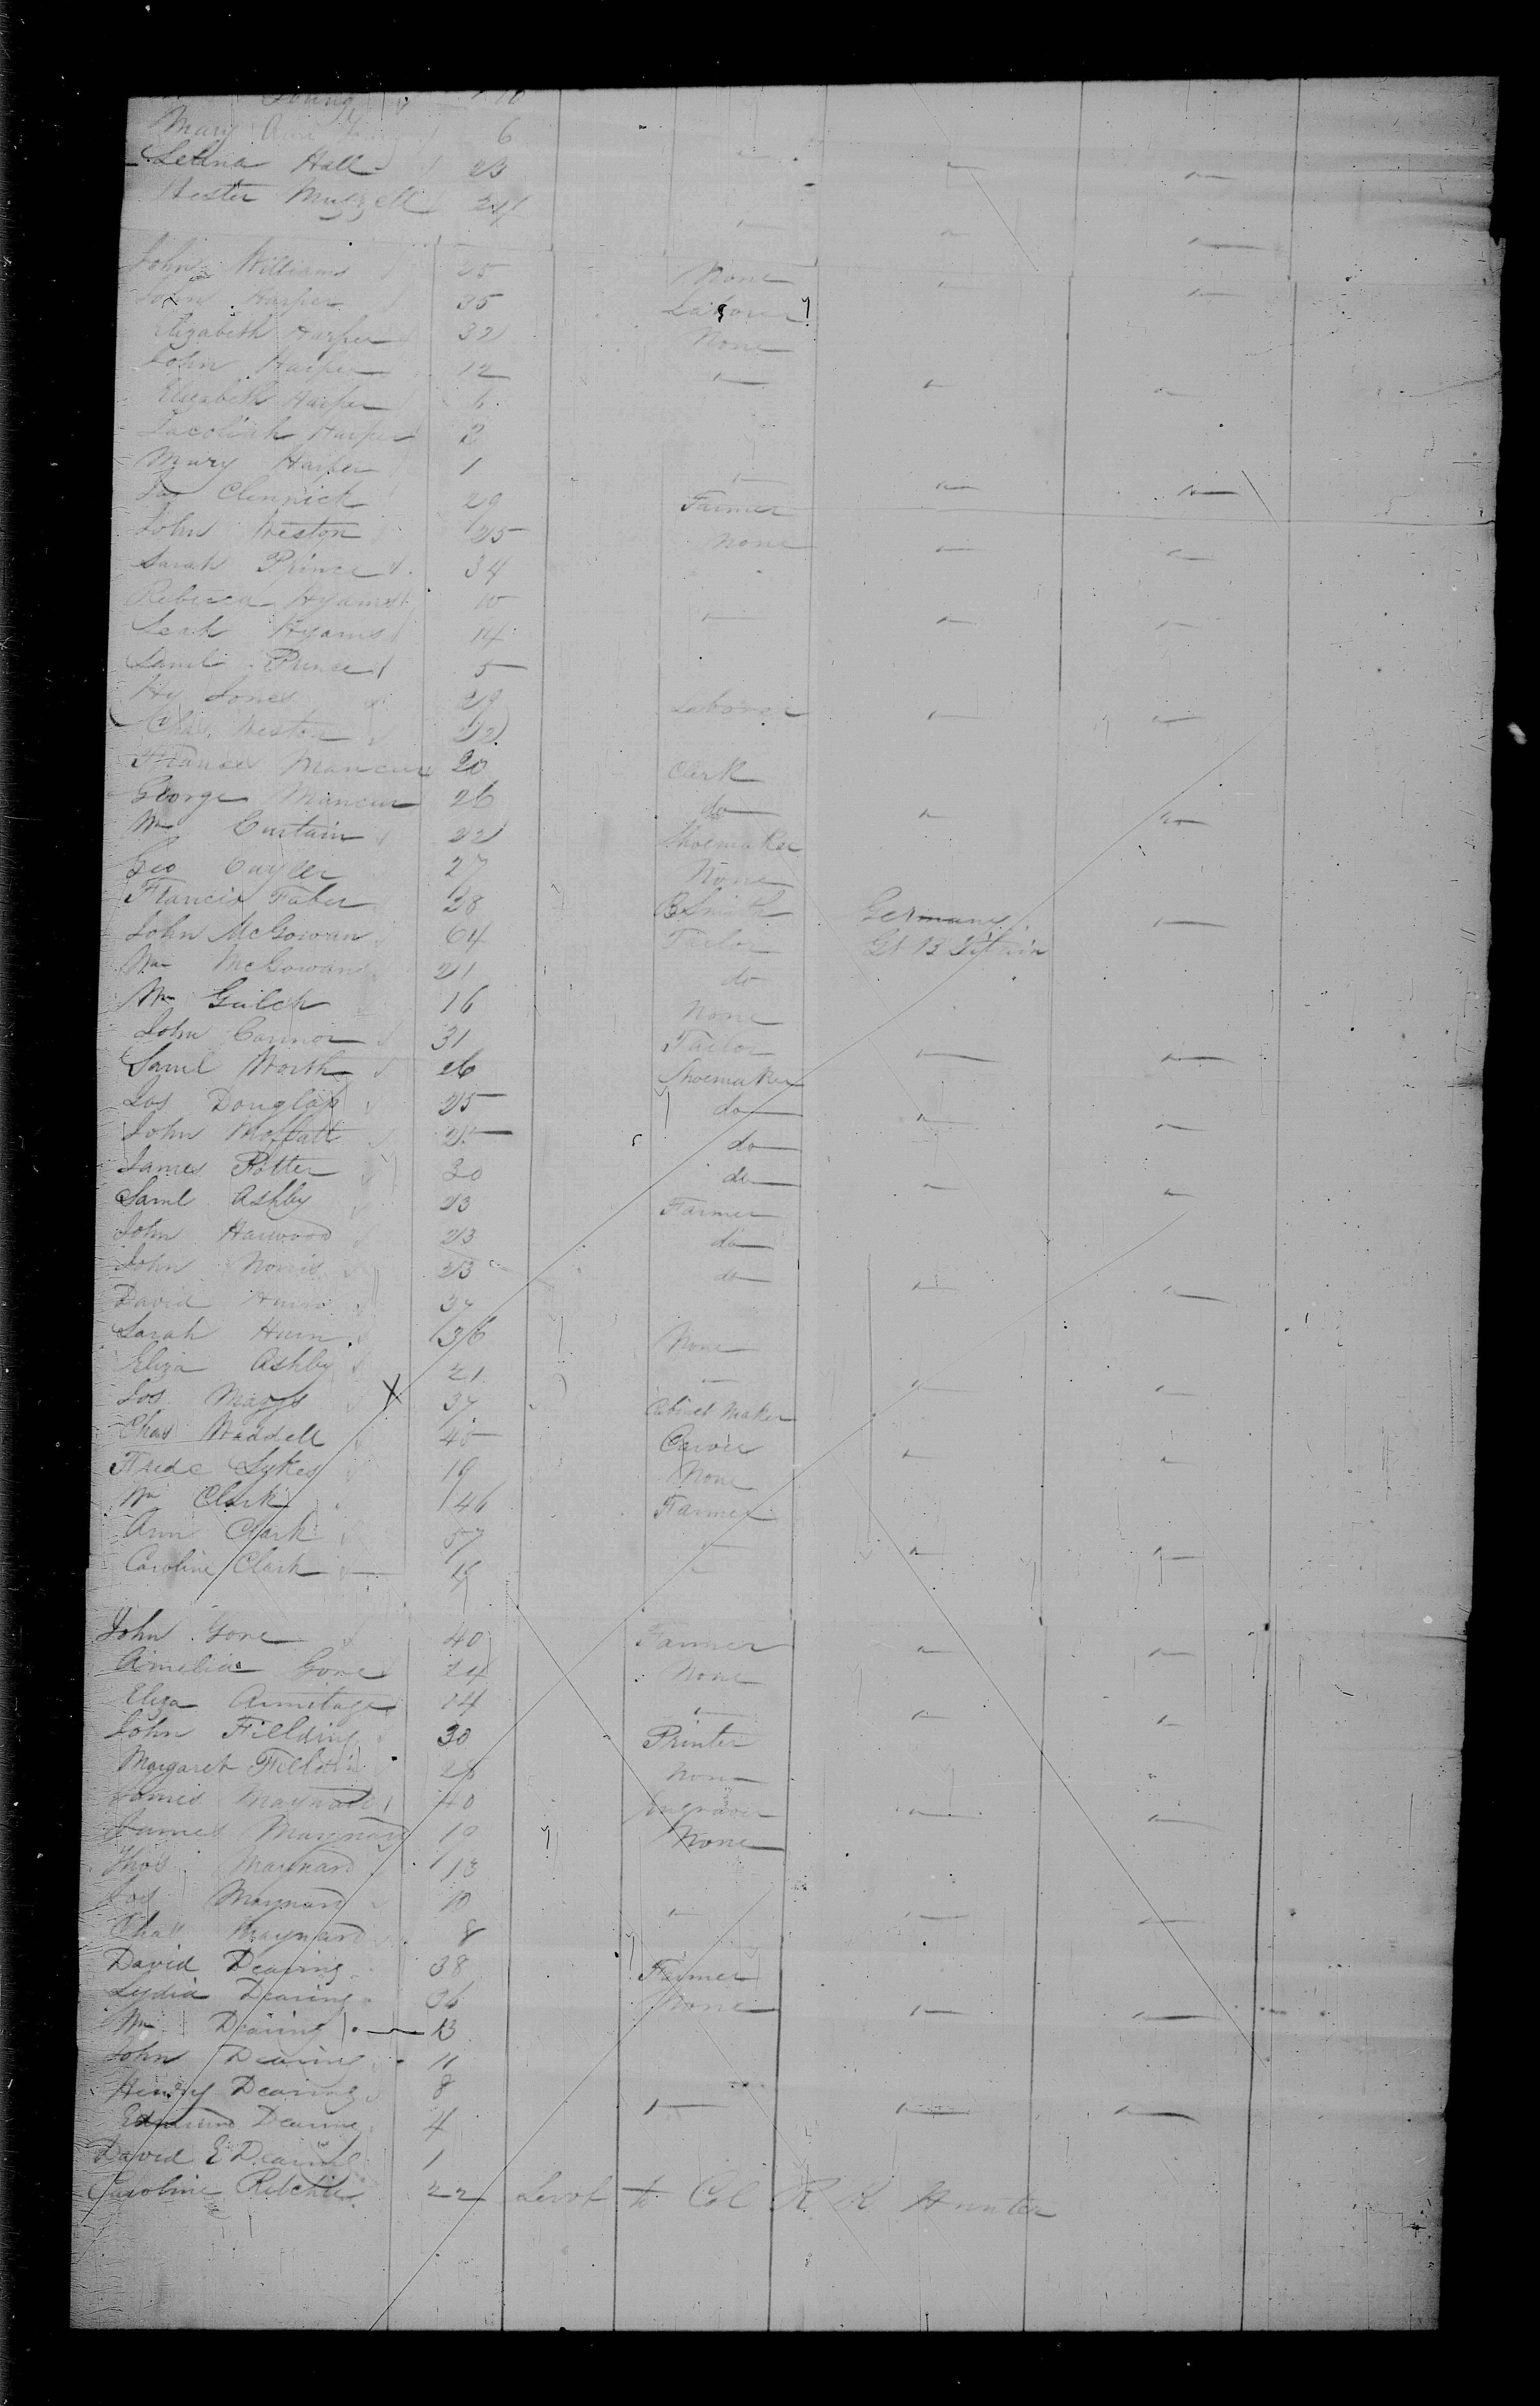 Young
Mary Ann 6
Selina Hall 23
Hester Muzzell 24
John Williams 25 None
John Harper 35 Laborer
Elizabeth Harper 32 None
John Harper 12
Elizabeth Harper
Harper 2
Mary Harper 1
Jas Clennick 29 Farmer
John Weston 25 None
Sarah Prince 34
Rebecca Hyams 10
Leah Hyams 14
Saml Prince 5
Hy Jones 29 Laborer
Chas Weston 22
Frances Mancur 20 Clerk
George Mancur 26 do
Wm Curtain 22 Shoemaker
Geo Cuyler 27 None
Francis Faber 28 B Smith Germany
John McGowan 64 Tailor Gt Britain
Wm McGowan 21 do
Wm Gulch 16 None
John Connor 31 Tailor
Saml Worth 26 Shoemaker
Jos Douglass 25 do
John Moffatt do
James Potter 30 do
Saml Ashby 23 Farmer
John Harwood 23 do
John Norris 23 do
David Hurn 37
Sarah Hurn 36 None
Eliza Ashby 21
Jos 37 Cabinet Maker
Chas Waddell 45 Carver
Fredc Sykes 19 None
Wm Clark 46 Farmer
Ann Clark 57
Caroline Clark
John Gore 40 Farmer
Amelia Gore 24 None
Eliza Armitage 14
John Fielding 30 Printer
Margaret 28 None
James Maynard 40 Engraver
James Maynard 19 None
Thos Maynard 13
Jos Maynard 10
Chas Maynard 8
David Dearing 38 Farmer
Lydia Dearing 36 None
Wm Dearing 13
John Dearing 11
Henry Dearing 8
Edmund Dearing 4
David E Dearing 1
Caroline Ritchie 22 Servt to Col R K Hunter